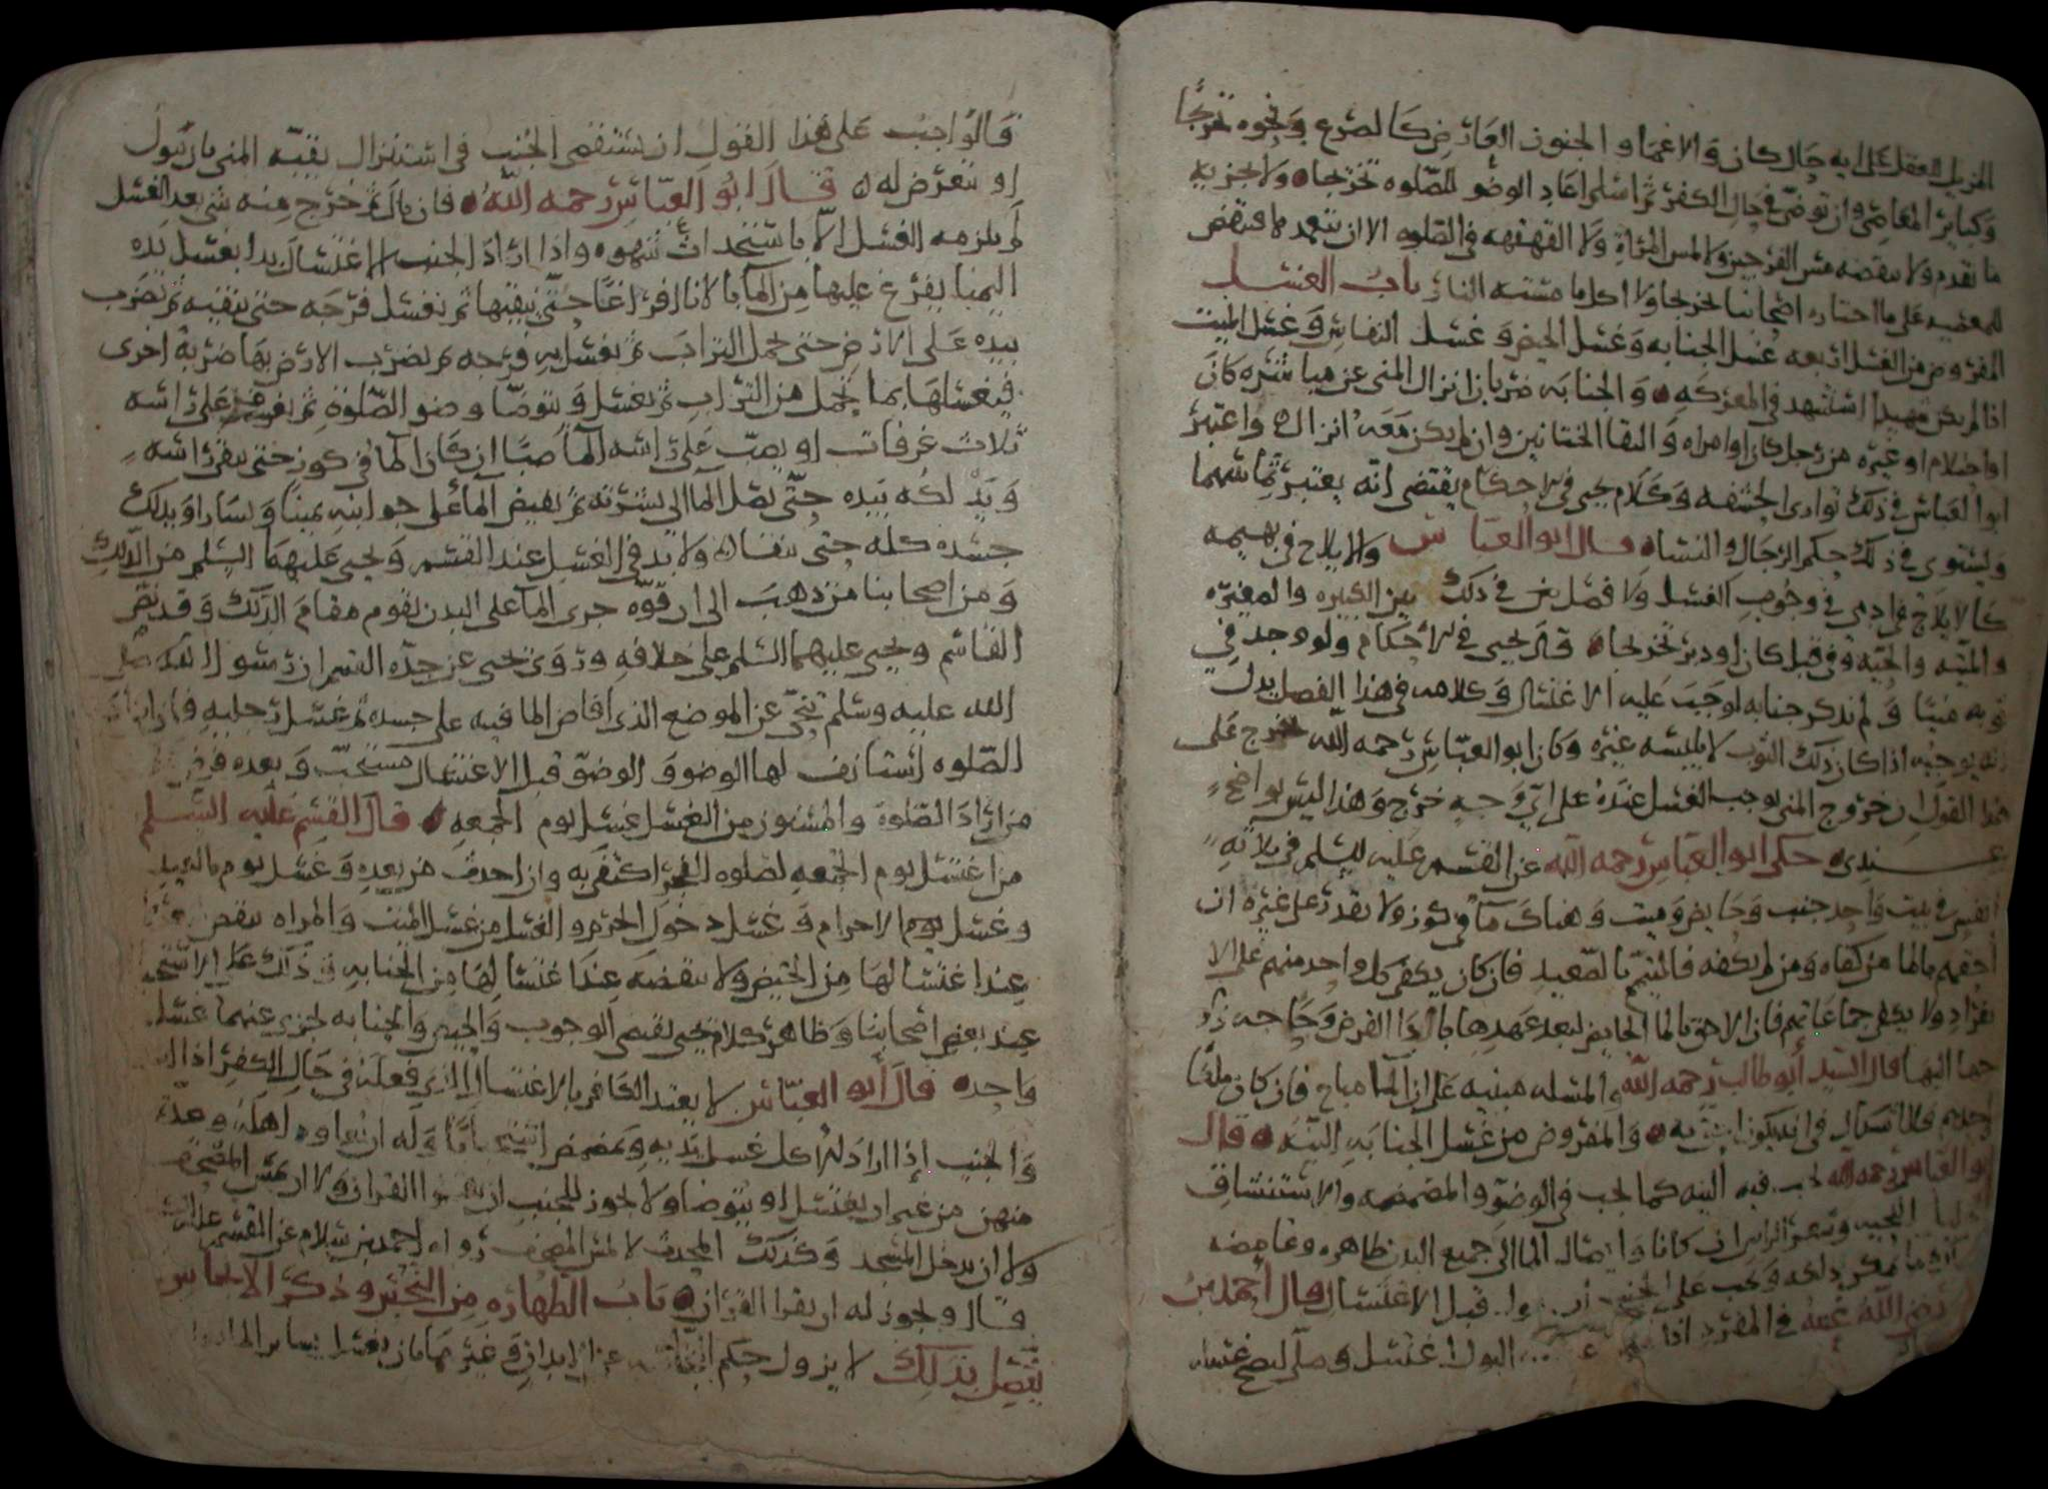 المزيل للعقل على اية حال كان والاغما والجنون العارض كالصرع ونحوه تخرجا
وكباير المعاصي وان توضى في حال الكفر ثم اسلم اعاد الوضو للصلوه تخرجا ولا يجزيه
ما تقدم ولا ينقضه مس الفرجين ولا لمس المراة ولا القهقهه في الصلوه الا ان يتعمد فينتقض
للمعصيه على ما اختاره اصحابنا تخرجا ولا اكل ما مسته النار باب الغسل
المفروض من الغسل اربعه غسل الجنابه وغسل الحيض وغسل النفاس وغسل الميت
اذا لم يكن شهيدا استشهد في المعركه والجنابه ضربان انزال المني عن مباشره كان
او احتلام او غيره من رجل كان او امراه والتقا الختانين وان لم يكن معه انزال واعتبر
ابو العباس في ذلك توارى الحشفه وكلام يحيى في الاحكام يقتضي انه يعتبر تماسهما
ويستوي في ذلك حكم الرجال والنسا قال ابو العباس والايلاج في بهيمه
كالايلاج في ادمي في وجوب الغسل ولا فصل في ذلك بين الكبيره والصغيره
والميته والحيه وفي قبل كان او دبر تخرجا قال يحيى في الاحكام ولو وجد في
ثوبه منيا ولم يذكر جنابه لوجب عليه الاغتسال وكلامه في هذا الفصل يدل
انه يوجبه اذا كان ذلك الثوب لا يلبسه غيره وكان ابو العباس رحمه الله يخرج على
هذا القول ان خروج المني يوجب الغسل عنده على اي وجه خرج وهذا ليس بواضح
عندي حكى ابو العباس رحمه الله عن القسم عليه السلم في ثلاثة
انفس في بيت واحد جنب وحايض وميت وهناك ما في كوز ولا يقدر على غيره ان
احقهم بالما من كفاه ومن لم يكفه فالمتيمم بالصعيد فان كان يكفي كل واحد منهم على الا
نفراد ولا يكفي جماعاتهم فان الاحق بالما الحايض لبعد عهدها بادا الفرض وحاجه زو
جها اليها قال السيد ابو طالب رحمه الله والمسله مبنيه على ان الما مباح فان كان ملكا
لاحدهم فلا اشكال في ان يكون احق به والمفروض من غسل الجنابه النيه قال
ابو العباس رحمه الله تجب فيه النيه كما تجب في الوضو والمضمضه والاستنشاق
اللحيه وشعر الراس ان كانا وايصال الما الى جميع البدن ظاهره وغامضه
ما يمكن دلكه ويجب على الجنب قبل الاغتسال قال احمد بن
رضي الله عنه في المفرد اذا البول اغتسل وصلى
فالواجب على هذا القول ان يستقصي الجنب في استنزال بقيه المني بان يبول
او يتعرض له قال ابو العباس رحمه الله فان بال ثم خرج منه شي بعد الغسل
لم يلزمه الغسل الا باستحداث شهوه واذا اراد الجنب الاغتسال بدا بغسل يده
اليمنا يفرغ عليها من الما بالانا افراغا حتى ينقيها ثم يغسل فرجه حتى ينقيه ثم يضرب
بيده على الارض حتى تحمل التراب ثم يغسل به فرجه ثم يضرب الارض بها ضربة اخرى
فيغسلها بما تحمل من التراب ثم يغسل ويتوضا وضو الصلوة ثم يغرف على راسه
ثلاث غرفات او يصب على راسه الما صبا ان كان الما في كوز حتى ينقي راسه
ويدلكه بيده حتى يصل الما الى بشرته ثم يفيض الما على جوانبه يمينا ويسارا ويدلك
جسده كله حتى ينقا ولا بد في الغسل عند القسم ويحيى عليهما السلم من الدلك
ومن اصحابنا من ذهب الى ان قوه جرى الما على البدن يقوم مقام الدلك وقد نص
القاسم ويحيى عليهما السلم على خلافه وروى يحيى عن جده القسم ان رسول الله صلى
الله عليه وسلم تنحى عن الموضع الذي افاض الما فيه على جسده ثم غسل رجليه فان اراد
الصلوه استانف لها الوضو والوضو قبل الاغتسال مستحب وبعده فرض
من اراد الصلوة والمسنون من الغسل غسل يوم الجمعه قال القسم عليه السلم
من اغتسل يوم الجمعه لصلوه الفجر اكتفى به وان احدث من بعده وغسل يوم العيد
وغسل يوم الاحرام وغسل دخول الحرم والغسل من غسل الميت والمراه تنقض
عند اغتسالها من الحيض ولا تنقضه عند اغتسالها من الجنابه
عند بعض اصحابنا وظاهر كلام يحيى يقتضي الوجوب والحيض والجنابه يجزي عنهما غسل
واحد قال ابو العباس لا يعتد الكافر بالاغتسال الذي فعله في حال الكفر اذا اسلم
والجنب اذا اراد الاكل غسل يديه وتمضمض استحبابا وله ان يعاود اهله وعدة
منهن من غير ان يغتسل او يتوضا ولا يجوز للجنب ان يقرا القران ولا ان يمس المصحف
ولا ان يدخل المسجد وكذلك المحدث لا يمس المصحف رواه احمد بن سلام عن القسم عليه السلم
قال ويجوز له ان يقرا القران باب الطهاره من النجس وذكر الانجاس
يتصل بذلك لا يزول حكم النجاسه عن الابدان وغيرها بان يغسل بساير المايعات